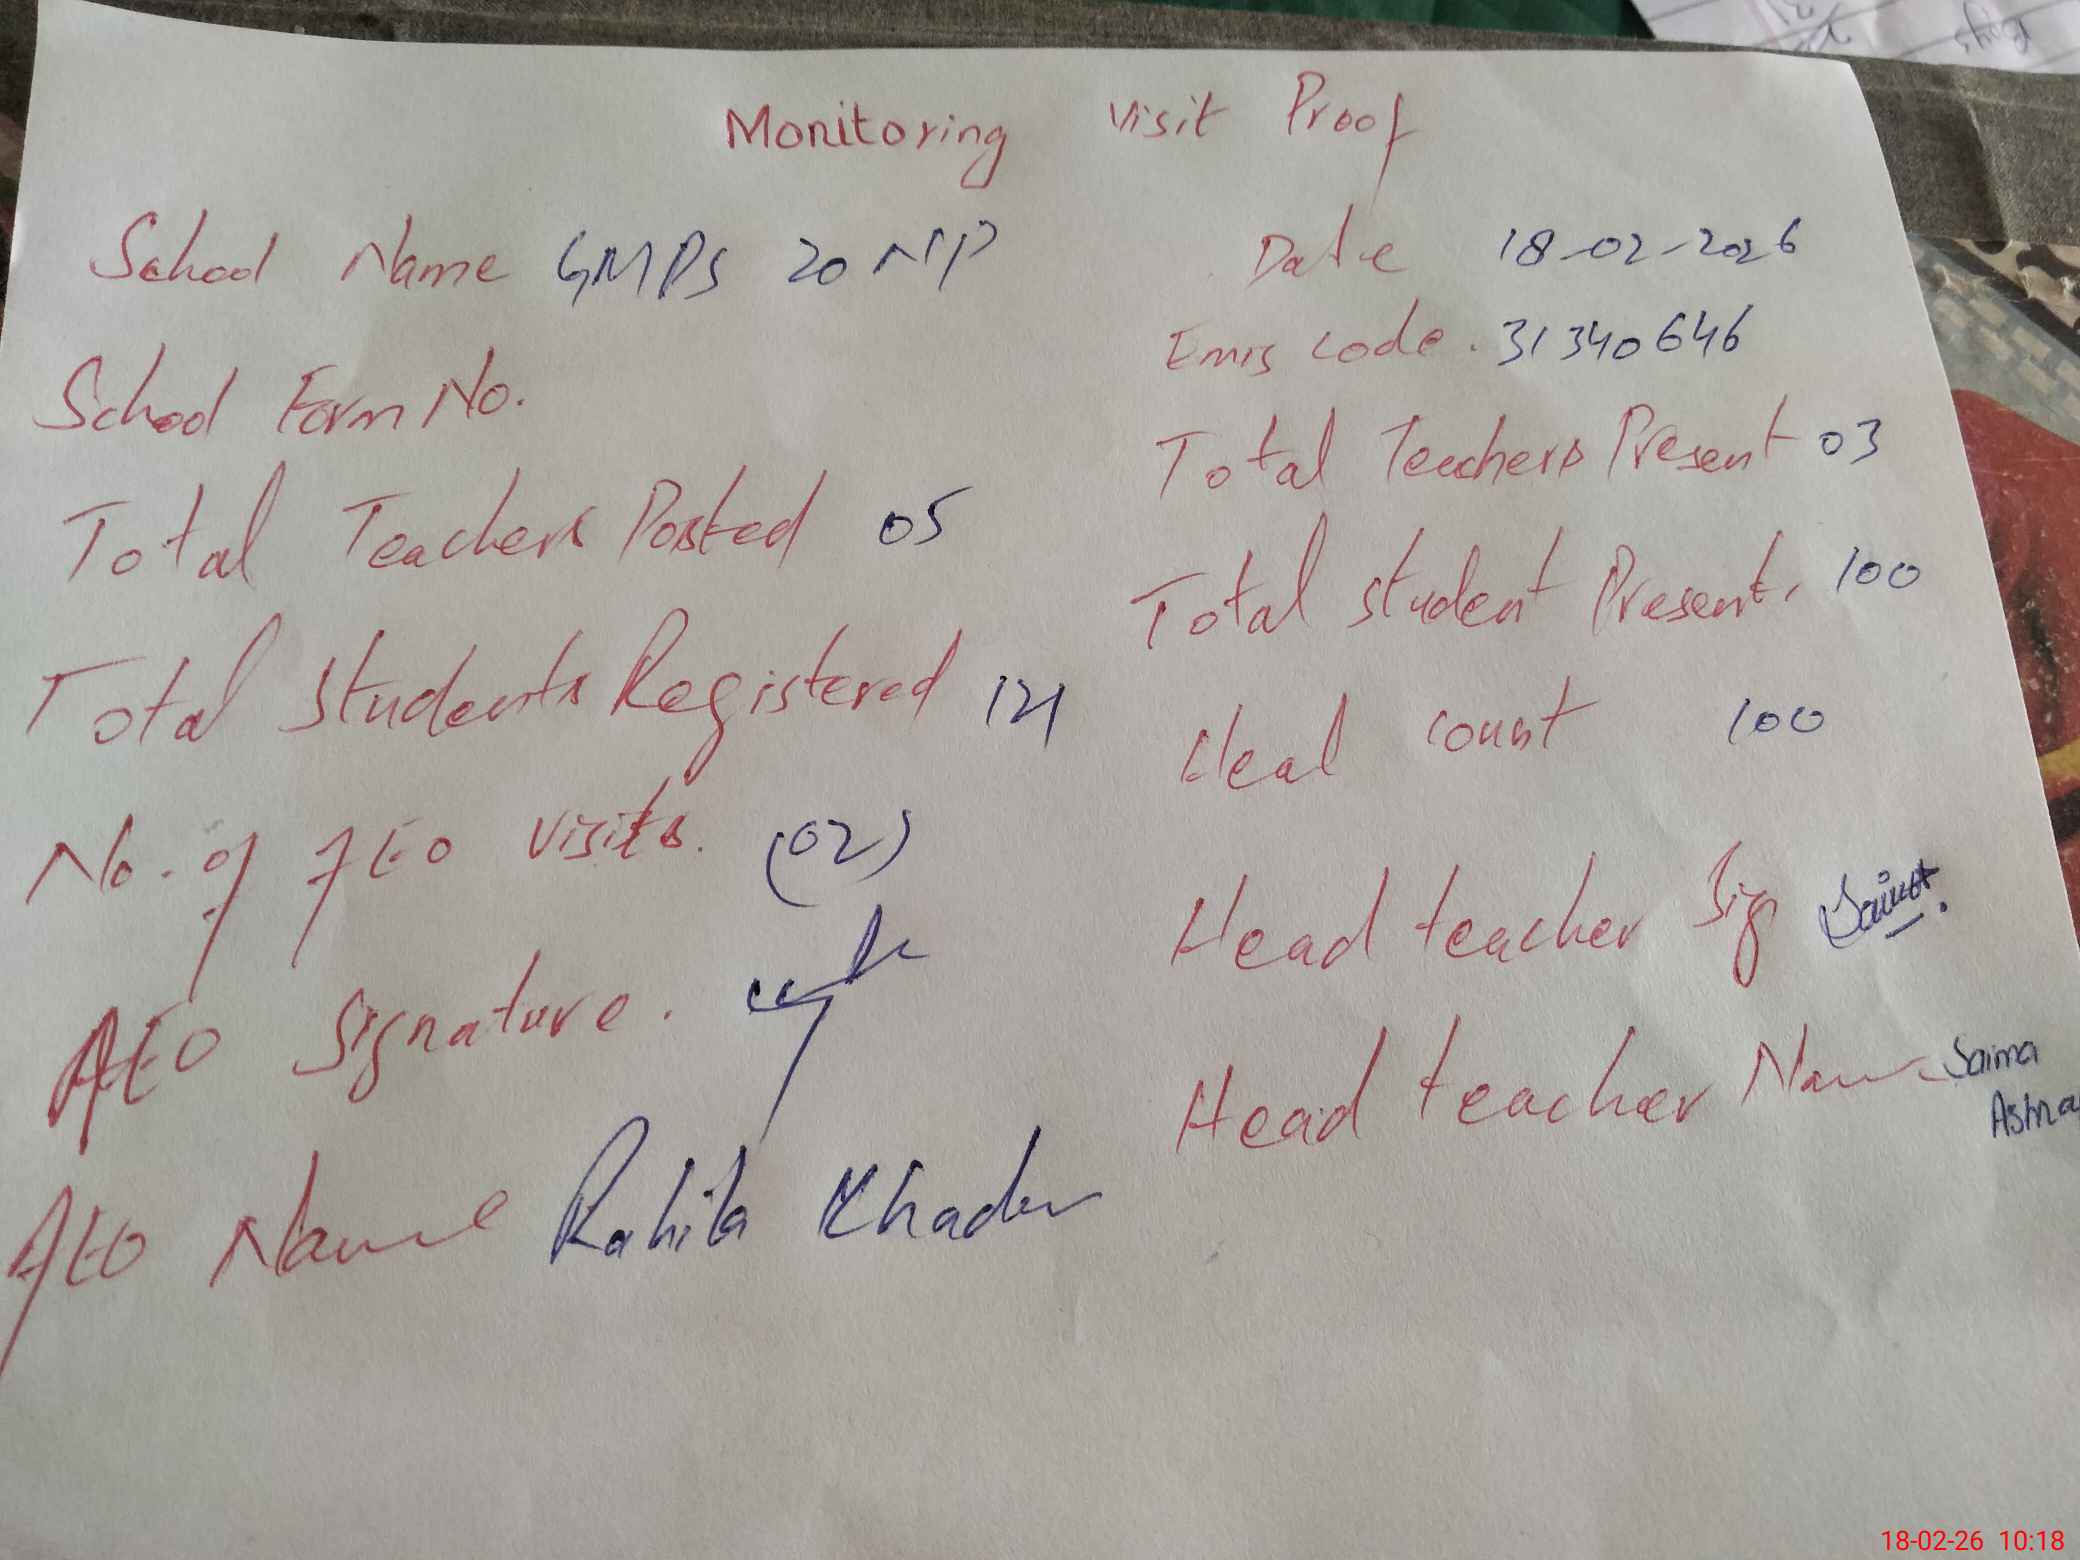 Monitoring visit Proof
School Name GMPS 20 NP
Date 18-02-2026
Emis code. 31340646
School Form No.
Total Teachers Present 03
Total Teachers Posted 05
Total student Present. 100
Total Students Registered 121
Head count 100
No. of AEO visits. (02)
Head teacher Sig Saima.
AEO Signature.
Head teacher Name Saima
AEO Name Rahila Khader
18-02-26 10:18